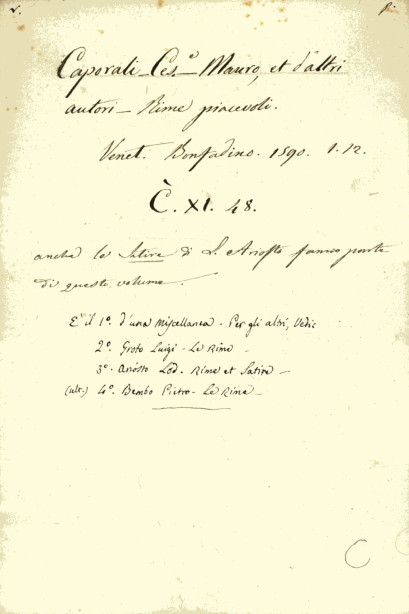 Caporali Ces.º Mauro, et d'altri
autori – Rime piacevoli.
Venet. Bonfadino. 1590. 1. 12.
C. XI. 48.
anche le Satire di L. Ariosto fanno parte
di questo volume.
E' il 1º. d'una Miscellanea - Per gli altri, Vedi:
2º. Groto Luigi - Le Rime –
3º. Ariosto Lod. Rime et Satire –
(ult.) 4º. Bembo Pietro - Le Rime –
C